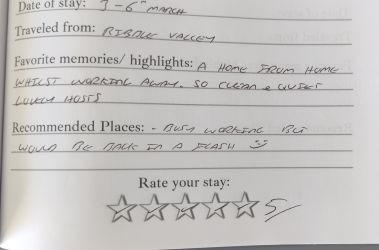 Date of stay: 3 - 6TH MARCH
Traveled from: RIBBLE VALLEY
Favorite memories/ highlights: A HOME FROM HOME
WHILST WORKING AWAY. SO CLEAN & QUIET
LOVELY HOSTS
Recommended Places: - BUSY WORKING BUT
WOULD BE BACK IN A FLASH
Rate your stay:
5/